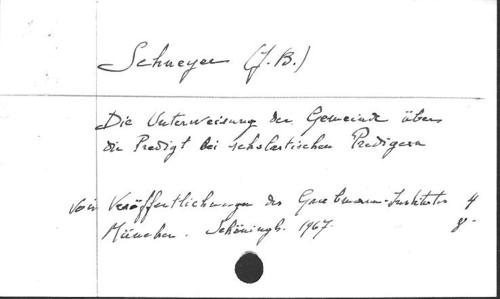 Schneyer (J. B.)
Die Unterweisung der Gemeinde über
die Predigt bei scholastischen Predigern
voir Veröffentlichungen des Grabmann-Institutes 4
München. Schöningh. 1967. 8.